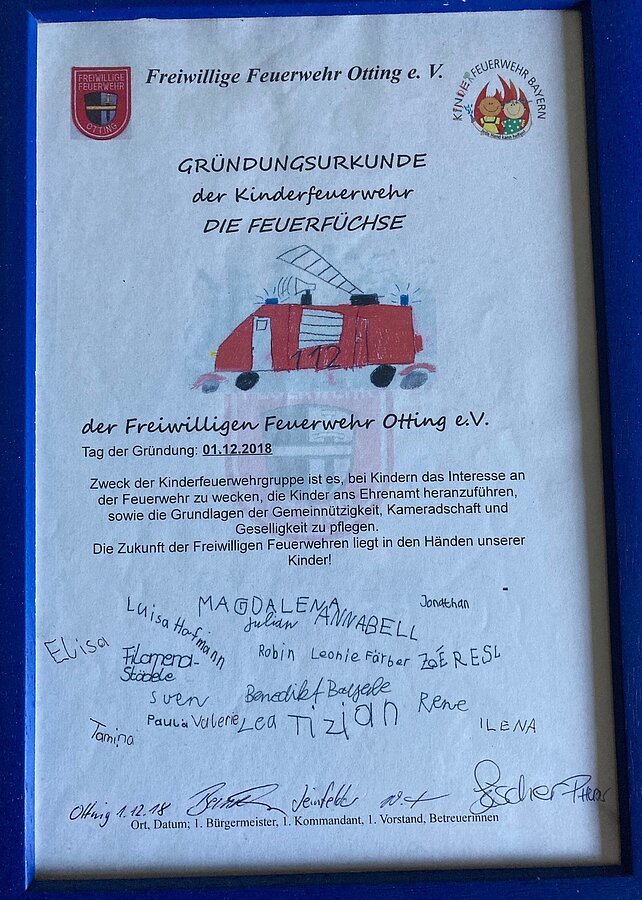 FREIWILLIGE
FEUERWEHR
OTTING
Freiwillige Feuerwehr Otting e. V.
KINDERFEUERWEHR BAYERN
GRÜNDUNGSURKUNDE
der Kinderfeuerwehr
DIE FEUERFÜCHSE
112
der Freiwilligen Feuerwehr Otting e.V.
Tag der Gründung: 01.12.2018
Zweck der Kinderfeuerwehrgruppe ist es, bei Kindern das Interesse an
der Feuerwehr zu wecken, die Kinder ans Ehrenamt heranzuführen,
sowie die Grundlagen der Gemeinnützigkeit, Kameradschaft und
Geselligkeit zu pflegen.
Die Zukunft der Freiwilligen Feuerwehren liegt in den Händen unserer
Kinder!
Luisa Hofmann MAGDALENA Jonathan
Julian ANNABELL
Elisa
Filomena Robin Leonie Färber ZOÉ RESL
Städele
Sven Benedikt René
Tamina Paula Valerie Lea Tizian ILENA
Otting 1.12.18
Ort, Datum; 1. Bürgermeister, 1. Kommandant, 1. Vorstand, Betreuerinnen